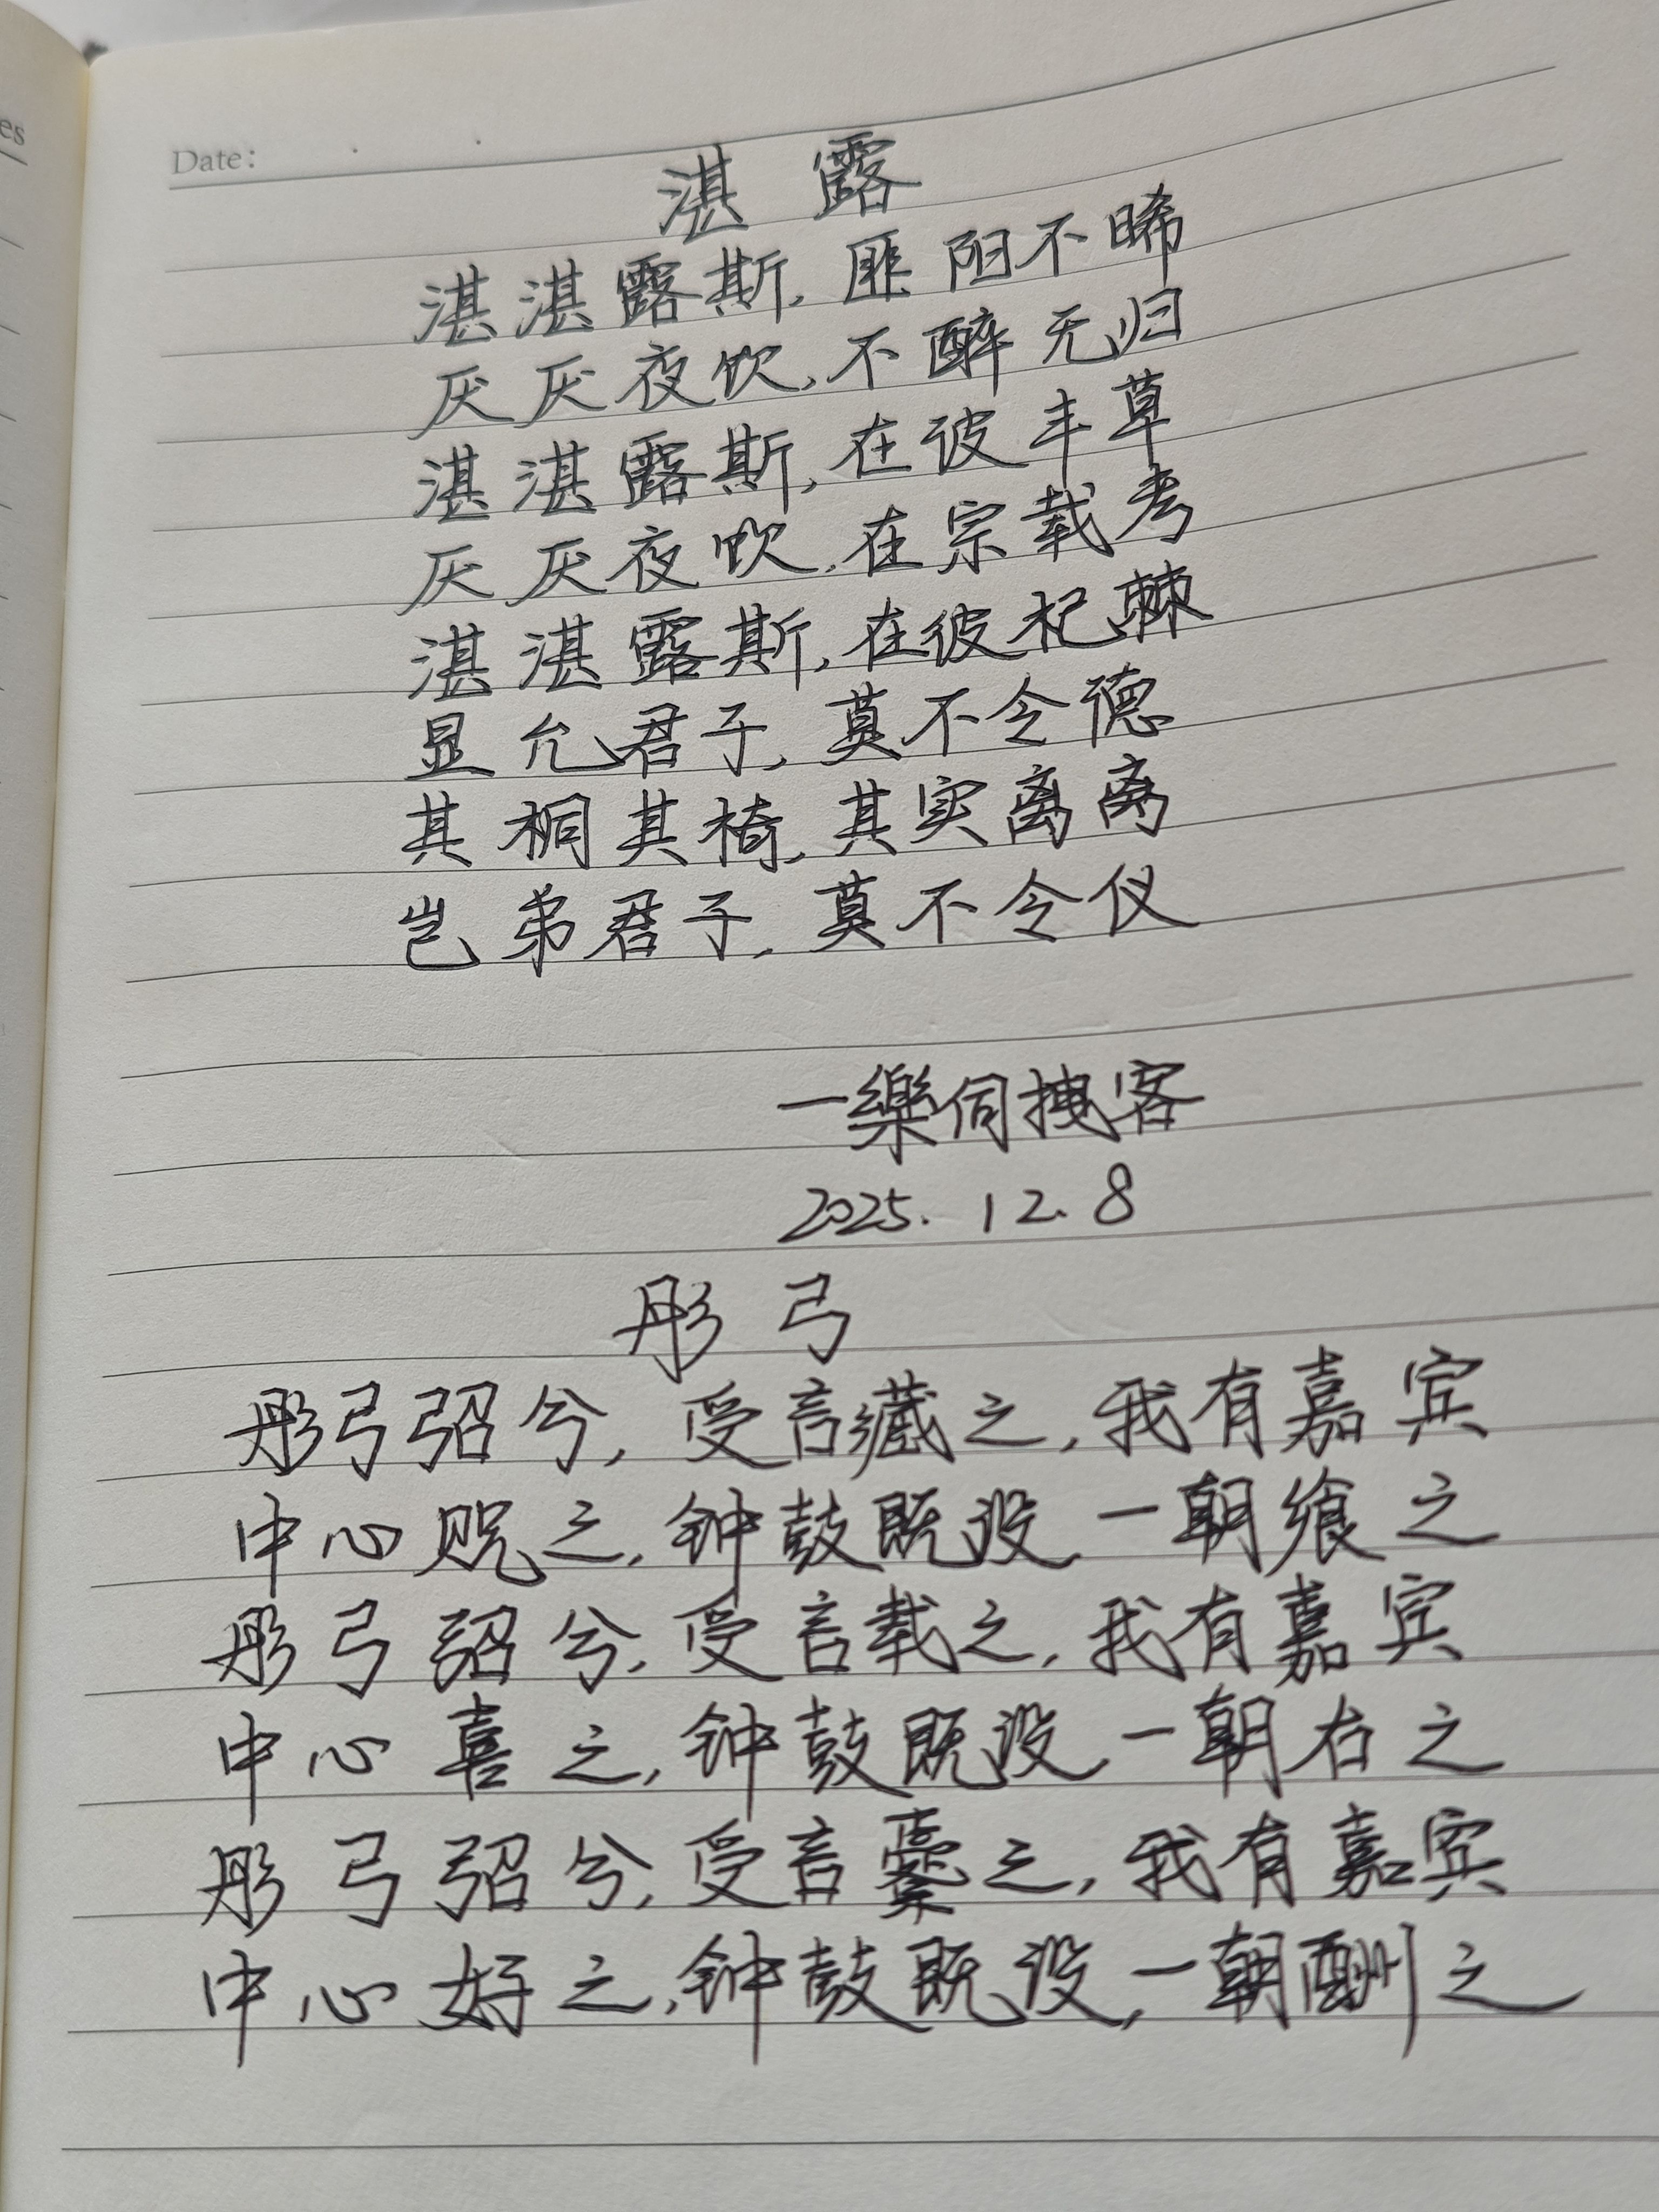 es
Date:
湛露
湛湛露斯,匪阳不晞
厌厌夜饮,不醉无归
湛湛露斯,在彼丰草
厌厌夜饮,在宗载考
湛湛露斯,在彼杞棘
显允君子,莫不令德
其桐其椅,其实离离
岂弟君子,莫不令仪
一樂伺拽客
2025.12.8
彤弓
彤弓弨兮,受言藏之,我有嘉宾
中心贶之,钟鼓既设,一朝飨之
彤弓弨兮,受言载之,我有嘉宾
中心喜之,钟鼓既设,一朝右之
彤弓弨兮,受言櫜之,我有嘉宾
中心好之,钟鼓既设,一朝酬之